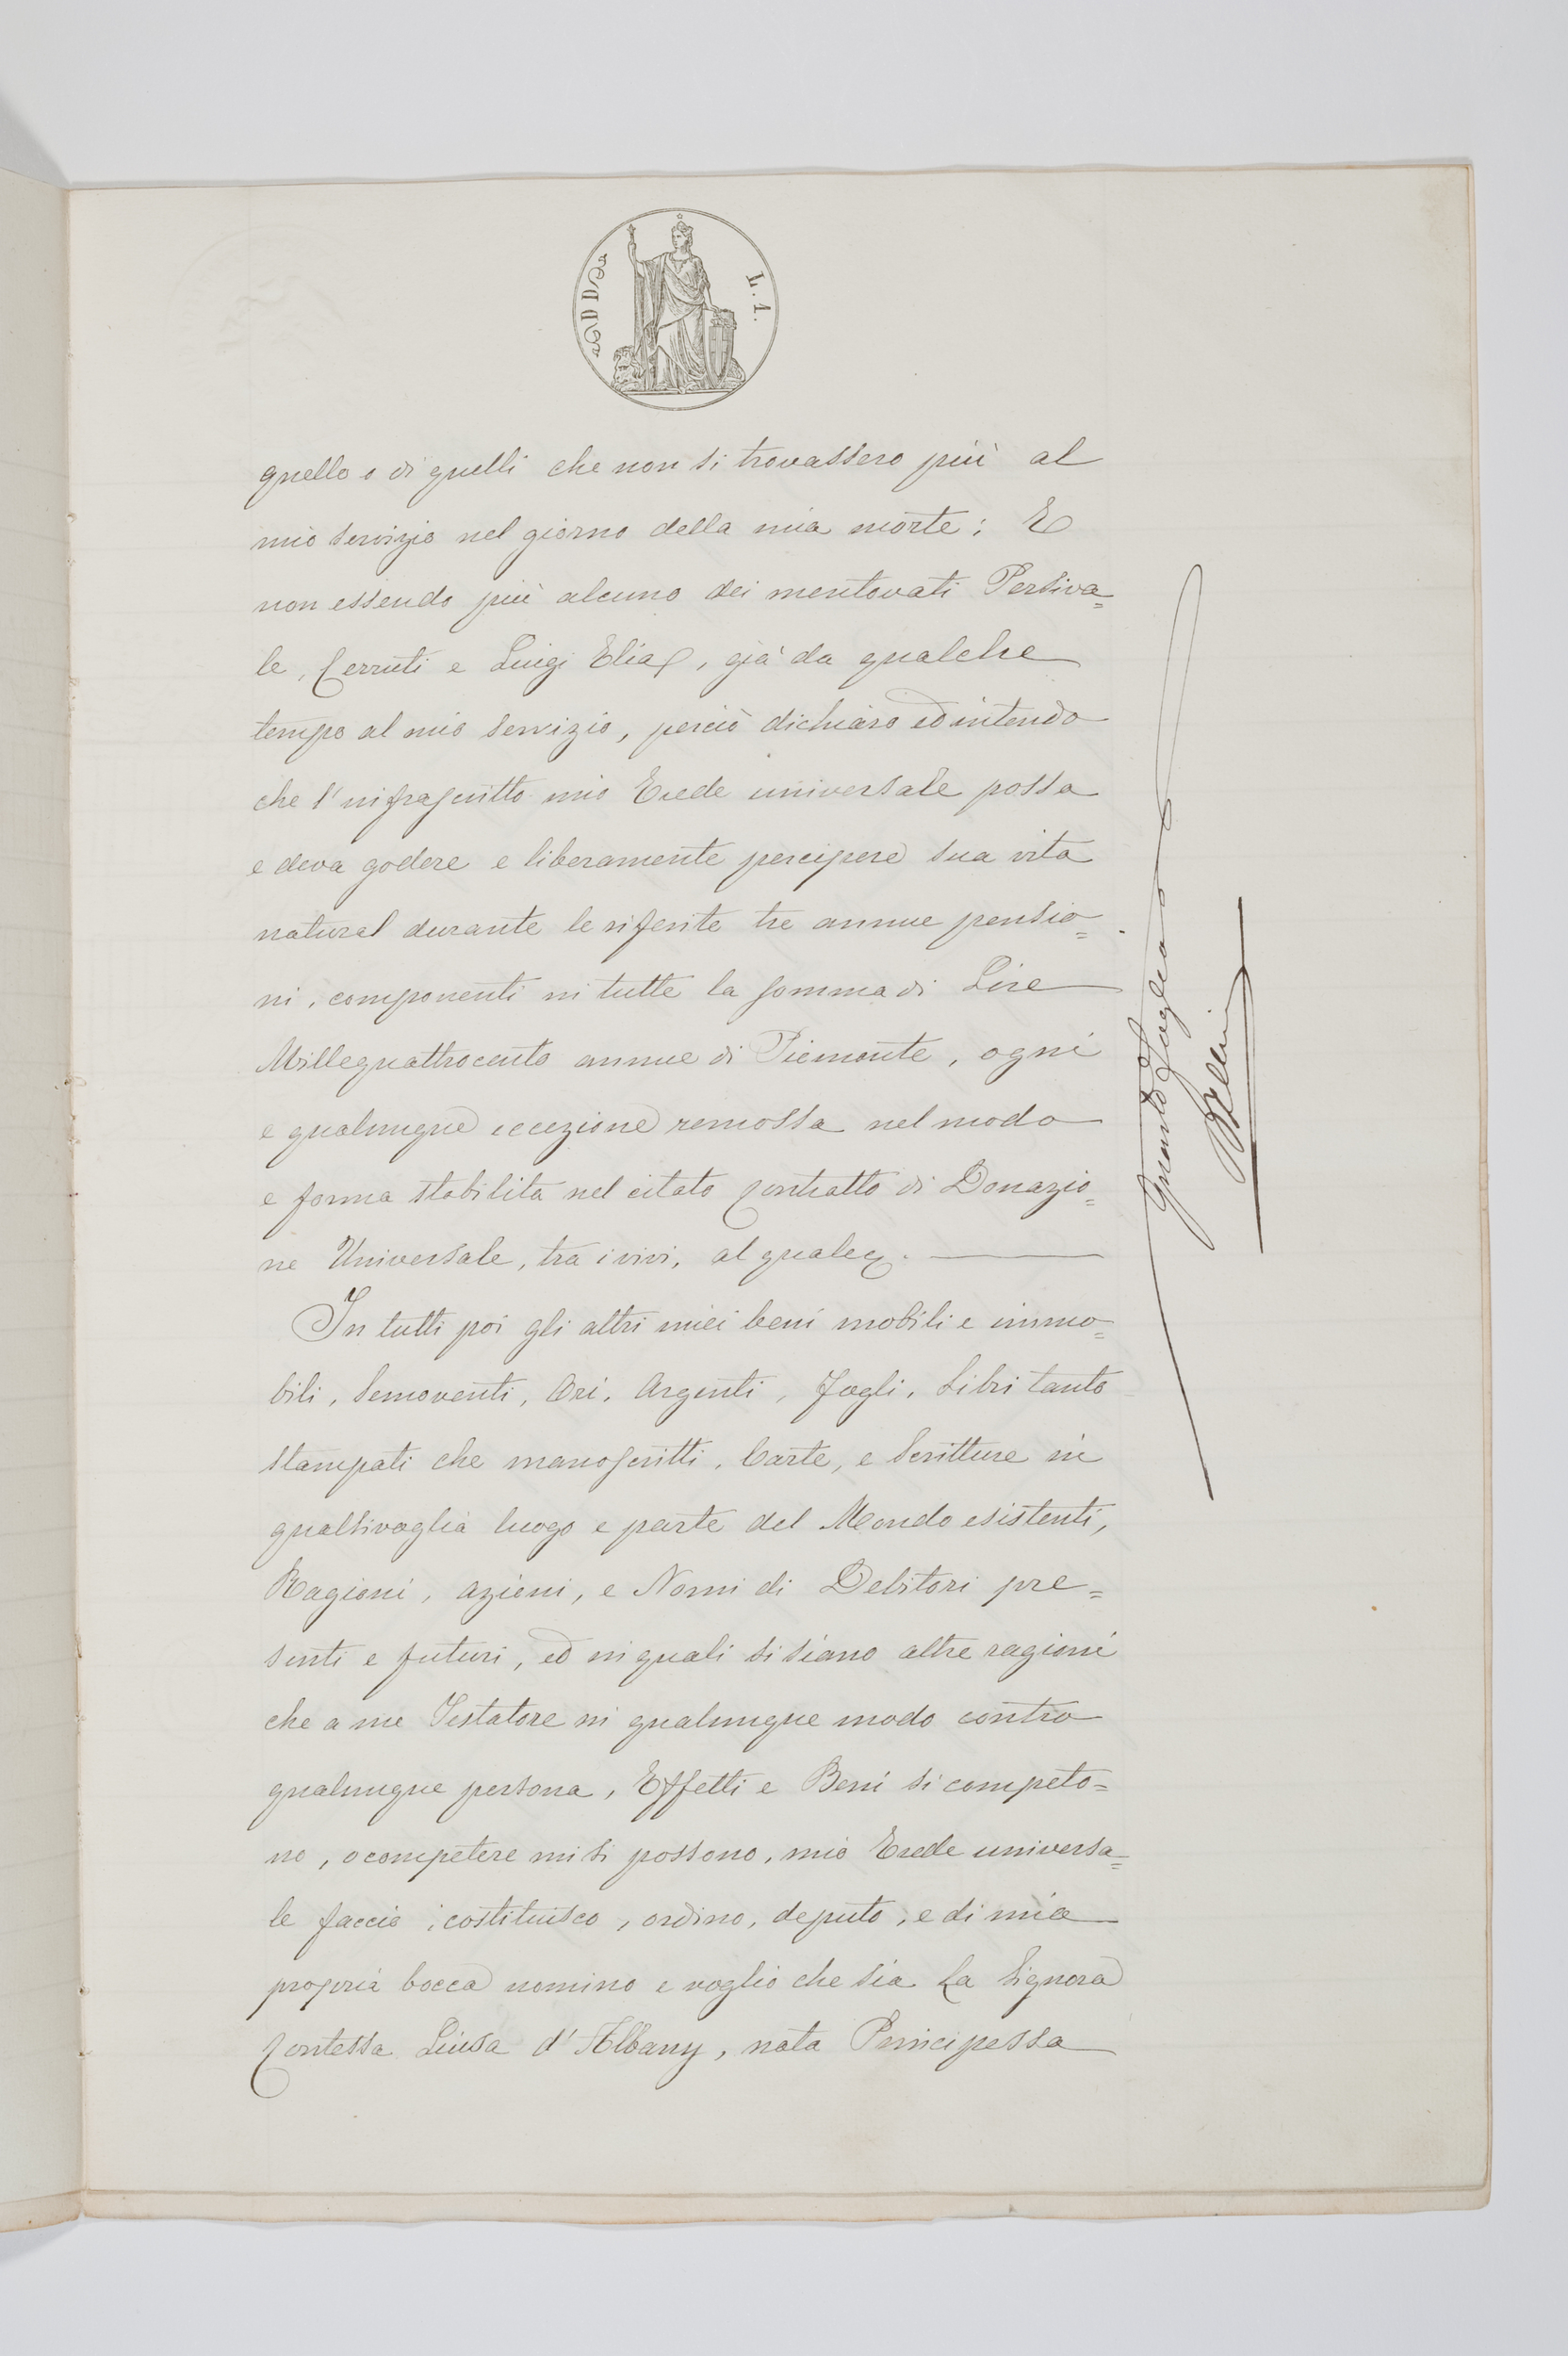 DD
L. 1.
quello o di quelli che non si trovassero più al
mio servizio nel giorno della mia morte; E
non essendo più alcuno dei mentovati Persiva=
le, Cerruti e Luigi Elia, già da qualche
tempo al mio servizio, perciò dichiaro ed intendo
che l'infrascritto mio Erede universale possa
e deva godere e liberamente percipere sua vita
natural durante le riferite tre annue pensio=
ni, componenti in tutte la somma di Lire
Millequattrocento annue di Piemonte, ogni
e qualunque eccezione remossa nel modo
e forma stabilita nel citato Contratto di Donazio=
ne Universale, tra i vivi, al quale.
In tutti poi gli altri miei beni mobili e immo=
bili, Semoventi, Ori, Argenti, Fogli, Libri tanto
stampati che manoscritti, Carte, e Scritture in
qualsivoglia luogo e parte del Mondo esistenti,
Ragioni, Azioni, e Nomi di Debitori pre=
senti e futuri, ed in quali si siano altre ragioni
che a me Testatore in qualunque modo contro
qualunque persona, Effetti e Beni si competo=
no, o competere mi si possono, mio Erede universa=
le faccio, costituisco, ordino, deputo, e di mia
propria bocca nomino e voglio che sia La Signora
Contessa Luisa d'Albany, nata Principessa
Quarto Foglio